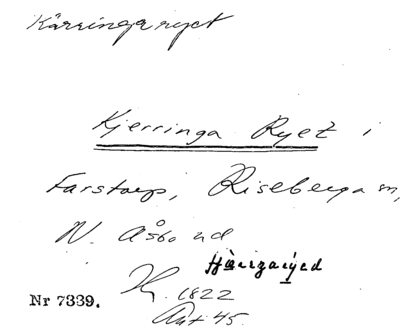 Kärringaryet
Kjerringa Ryet i
Farstorp, Riseberga sn,
N. Åsbo hd
Nr 7339.
1822
Akt 45.